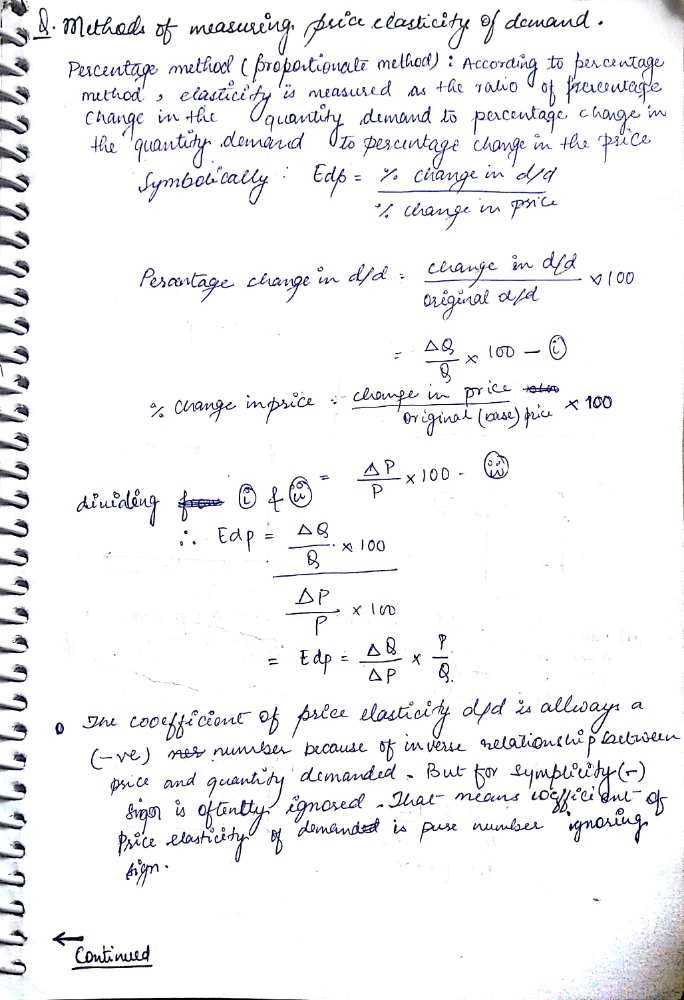 Q. Methods of measuring price elasticity of demand.
Percentage method (proportionate method) : According to percentage
method, elasticity is measured as the ratio of precentage
change in the quantity demand to percentage change in
the quantity demand to percentage change in the price
Symbolically : Edp = % change in d/d
% change in price
Percentage change in d/d = change in d/d × 100
original d/d
= ΔQ × 100 – (i)
Q
% change in price = change in price
original (base) price × 100
= ΔP × 100 - (ii)
P
dividing (i) & (ii)
∴ Edp = ΔQ × 100
Q
ΔP × 100
P
= Edp = ΔQ × P
ΔP Q.
The cooefficient of price elasticity d/d is allways a
(-ve) number because of inverse relationship between
price and quantity demanded. But for symplicity (-)
sign is oftently ignored. That means coefficient of
Price elasticity of demanded is pure number ignoring
sign.
← Continued